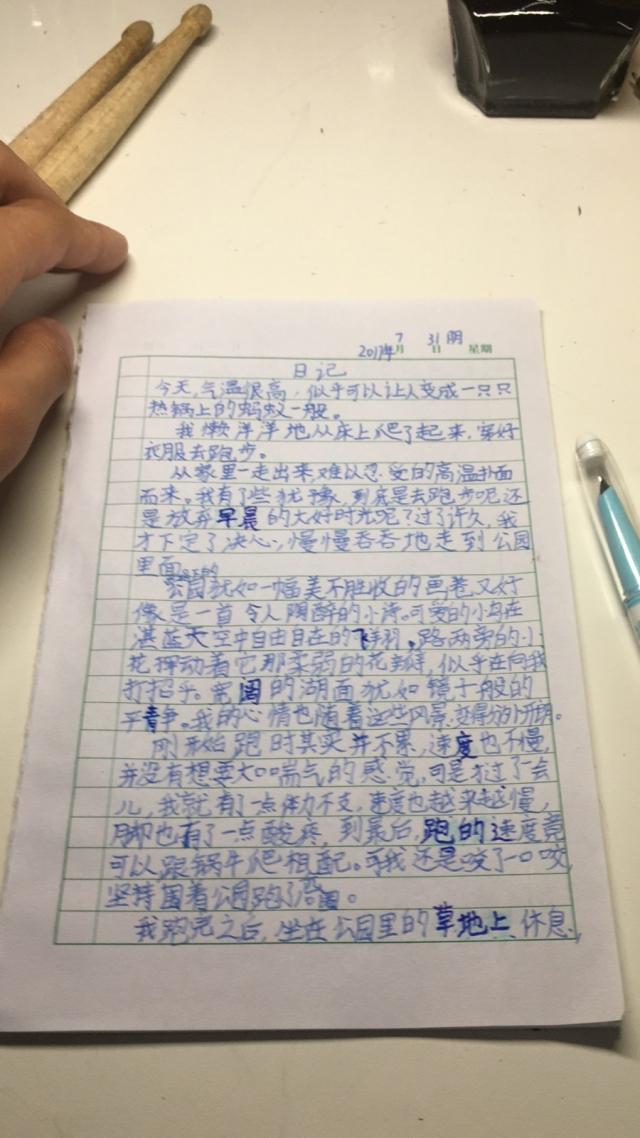 2017年7月31日 阴 星期
日记
今天,气温很高,似乎可以让人变成一只只
热锅上的蚂蚁一般。
我懒洋洋地从床上爬了起来,穿好
衣服去跑步。
从家里一走出来,难以忍受的高温扑面
而来。我有了些犹豫,到底是去跑步呢还
是放弃早晨的大好时光呢?过了许久,我
才下定了决心,慢慢吞吞地走到公园
里面
公园犹如一幅美不胜收的画卷,又好
像是一首令人陶醉的小诗。可爱的小鸟在
湛蓝天空中自由自在的飞翔。路两旁的小
花挥动着它那柔弱的花瓣,似乎在向我
打招乎。宽阔的湖面犹如镜子一般的
平静。我的心情也随着这些风景,变得分外开朗。
刚开始跑时其实并不累,速度也不慢,
并没有想要大口喘气的感觉,可是才过了一会
儿,我就有了一点体力不支,速度也越来越慢,
脚也有了一点酸疼,到最后,跑的速度竟
可以跟锅牛爬相配。可我还是咬了一口咬,
坚持围着公园跑了圈。
我跑完之后,坐在公园里的草地上休息,